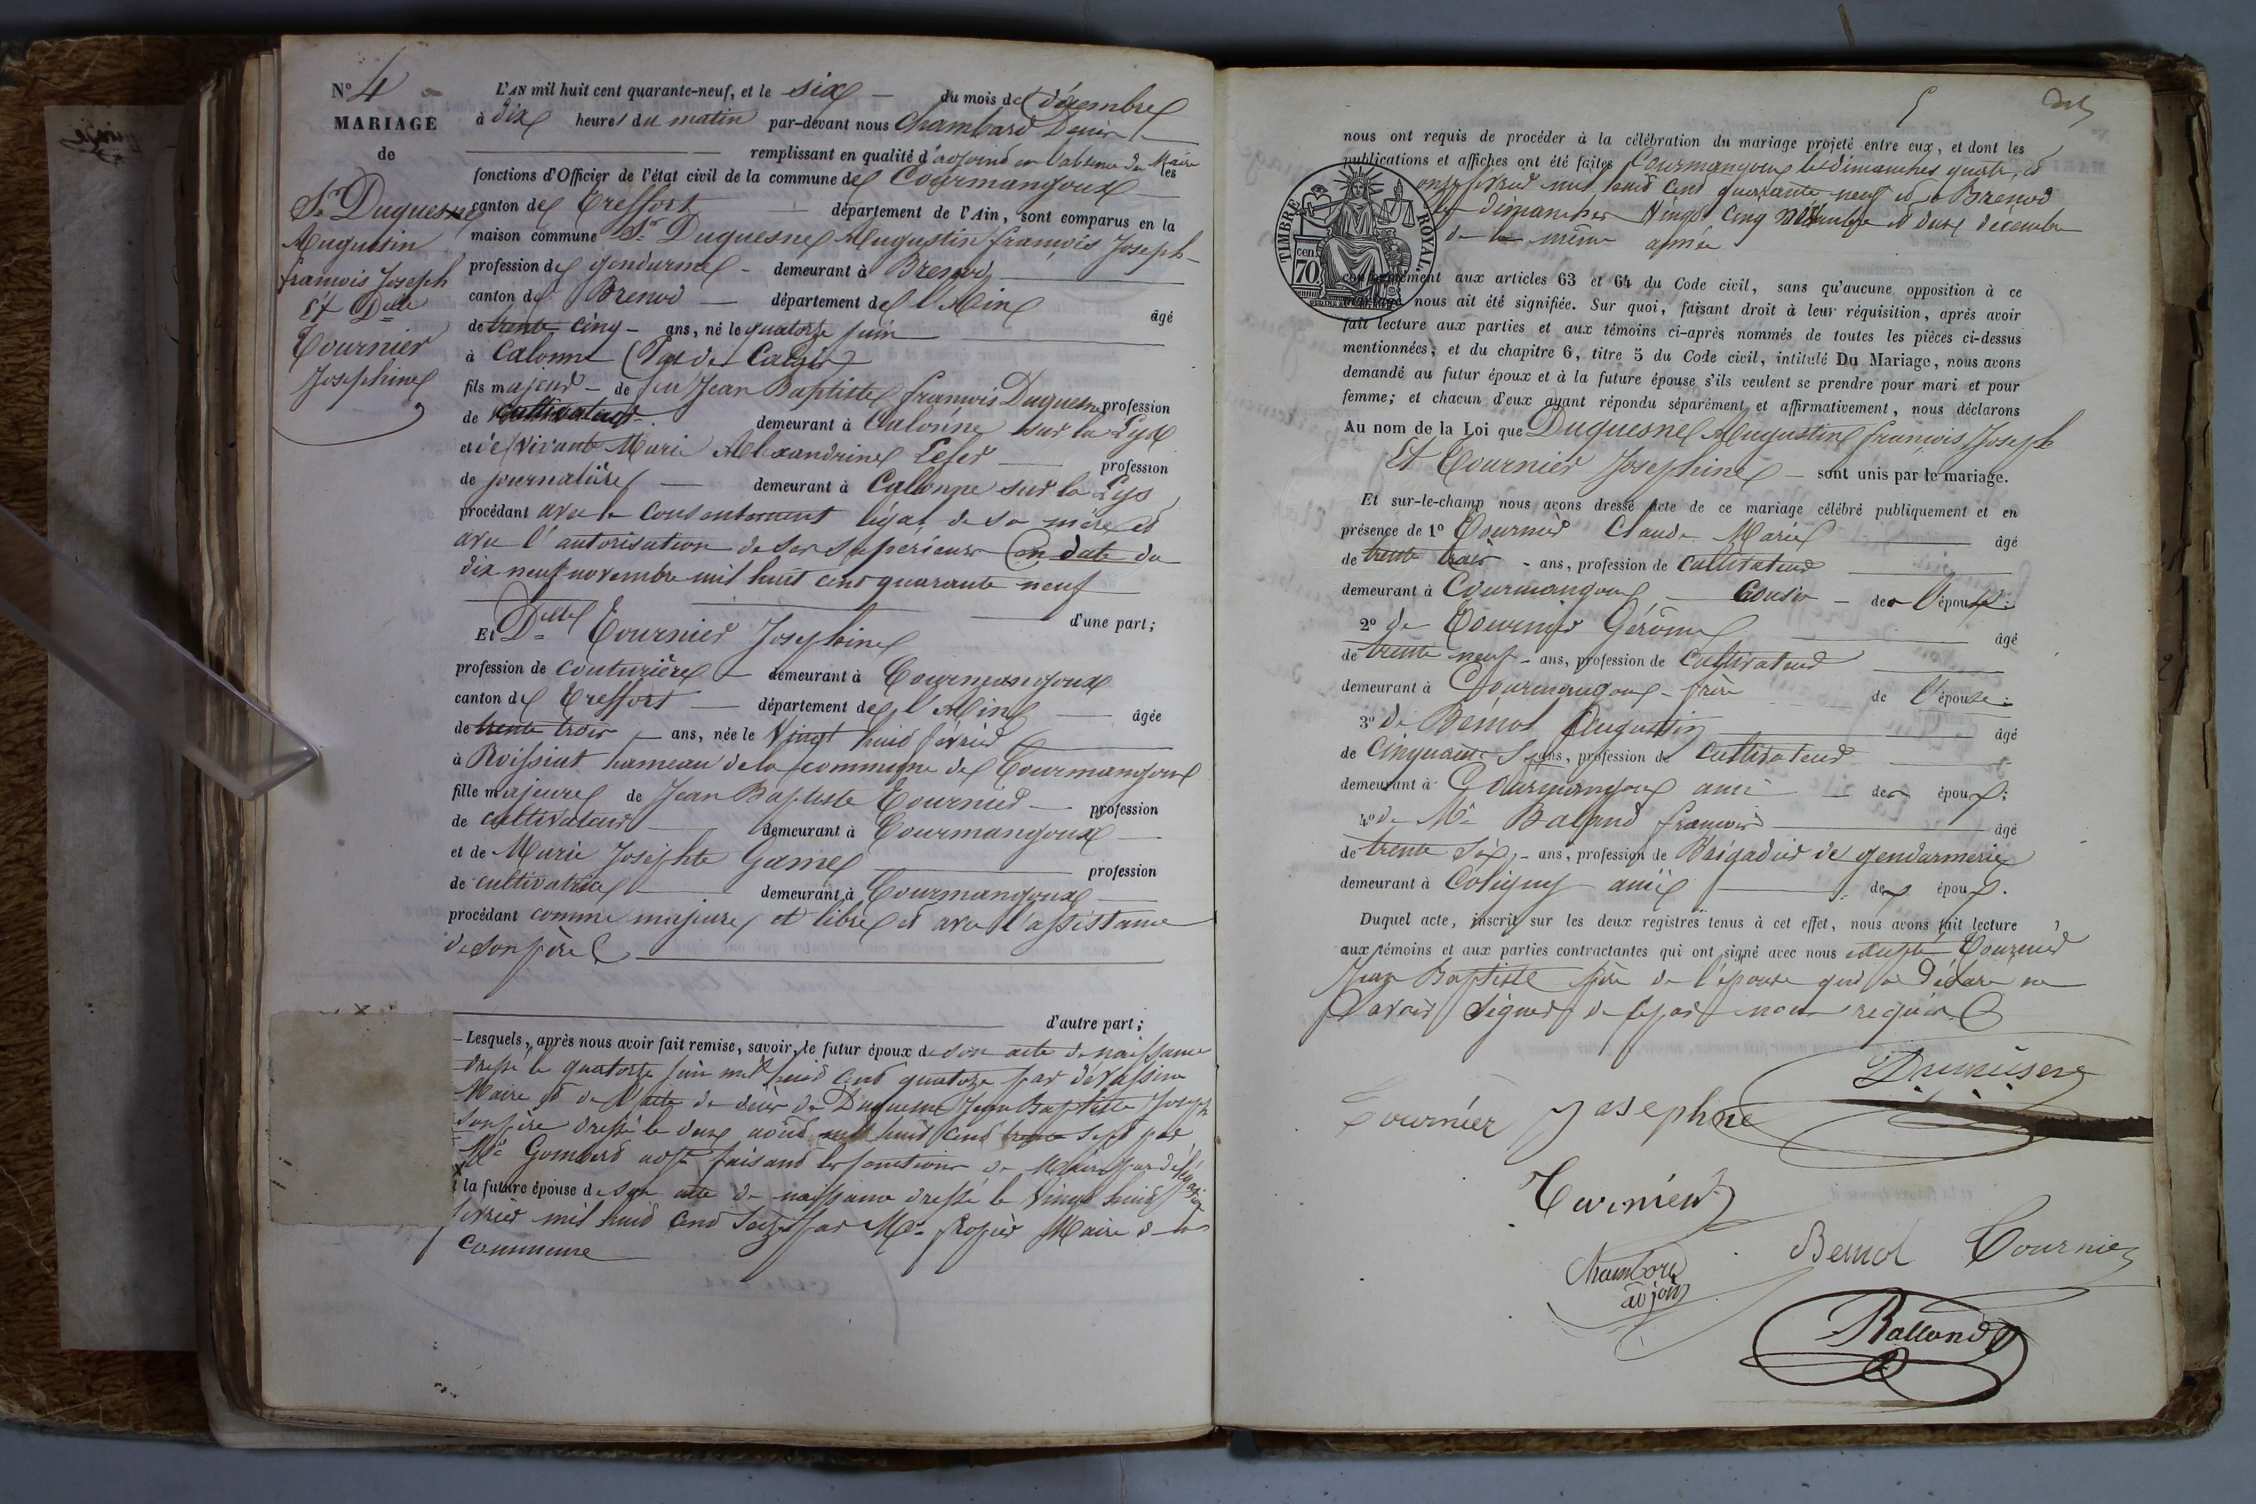 N° 4
MARIAGE
de
Sr Duquesne
Augustin
françois Joseph
Et Delle
Tournier
Josephine
L'AN mil huit cent quarante-neuf, et le six du mois de décembre
à dix heures du matin par-devant nous Chambard Denis
remplissant en qualité d'adjoind en l'absence du Maire les
fonctions d'Officier de l'état civil de la commune de Courmangoux
canton de Treffort département de l'Ain, sont comparus en la
maison commune Sr Duquesne Augustin françois Joseph
profession de gendarme demeurant à Brenod
canton de Brenod département de l'Ain âgé
de trente cinq ans, né le quatorze juin
à Calonne (Pas de Calais)
fils majeur de feu Jean Baptiste françois Duquesne profession
de cultivateur demeurant à Calonne sur la Lys
et de vivante Marie Alexandrine Lefer profession
de journalière demeurant à Calonne sur la Lys
procédant avec le consentement légal de sa mère et
avec l'autorisation de ses supérieurs en date du
dix neuf novembre mil huit cent quarante neuf
d'une part;
Et Delle Tournier Josephine
profession de couturière demeurant à Courmangoux
canton de Treffort département de l'Ain âgée
de trente trois ans, née le vingt huit février
à Roissiat hameau de la commune de Courmangoux
fille majeure de Jean Baptiste Tournier profession
de cultivateur demeurant à Courmangoux
et de Marie Josephte Game profession
de cultivatrice demeurant à Courmangoux
procédant comme majeure et libre et avec l'assistance
de son père
d'autre part;
Lesquels, après nous avoir fait remise, savoir, le futur époux de son acte de naissance
dressé le quatorze juin mil huit cent quatorze par
Maire et de l'acte de décès de Duquesne Jean Baptiste Joseph
son père dressé le deux août mil huit cent trente sept par
Mr Gombert adjt faisant les fonctions de Maire par délégation
la future épouse de son acte de naissance dressé le vingt huit
février mil huit cent seize par Mr Maire de la
commune
5
nous ont requis de procéder à la célébration du mariage projeté entre eux, et dont les
publications et affiches ont été faites Courmangoux les dimanches quatre, et
onze février mil huit cent quarante neuf et à Brenod
les dimanches vingt cinq novembre et deux décembre
de la même année
TIMBRE ROYAL
70 cen.
conformément aux articles 63 et 64 du Code civil, sans qu'aucune opposition à ce
mariage nous ait été signifiée. Sur quoi, faisant droit à leur réquisition, après avoir
fait lecture aux parties et aux témoins ci-après nommés de toutes les pièces ci-dessus
mentionnées; et du chapitre 6, titre 5 du Code civil, intitulé Du Mariage, nous avons
demandé au futur époux et à la future épouse s'ils veulent se prendre pour mari et pour
femme; et chacun d'eux ayant répondu séparément et affirmativement, nous déclarons
Au nom de la Loi que Duquesne Augustin françois Joseph
Et Tournier Josephine sont unis par le mariage.
Et sur-le-champ nous avons dressé acte de ce mariage célébré publiquement et en
présence de 1° Tournier Claude Marie âgé
de trente trois ans, profession de cultivateur
demeurant à Courmangoux Cousin de l'épouse;
2° de Tournier Gérôme âgé
de trente neuf ans, profession de cultivateur
demeurant à Courmangoux frère de l'épouse;
3° de Bémol Augustin âgé
de cinquante ans, profession de cultivateur
demeurant à Courmangoux ami de époux;
4° de Mr Baland françois âgé
de trente six ans, profession de Brigadier de gendarmerie
demeurant à Coligny ami de époux.
Duquel acte, inscrit sur les deux registres tenus à cet effet, nous avons fait lecture
aux témoins et aux parties contractantes qui ont signé avec nous excepté Tournier
Jean Baptiste père de l'épouse qui a déclaré ne
savoir signer de ce par nous requis
Tournier Josephne
Tournier
Bemol Tournier
Chambard
adjoin
Balland